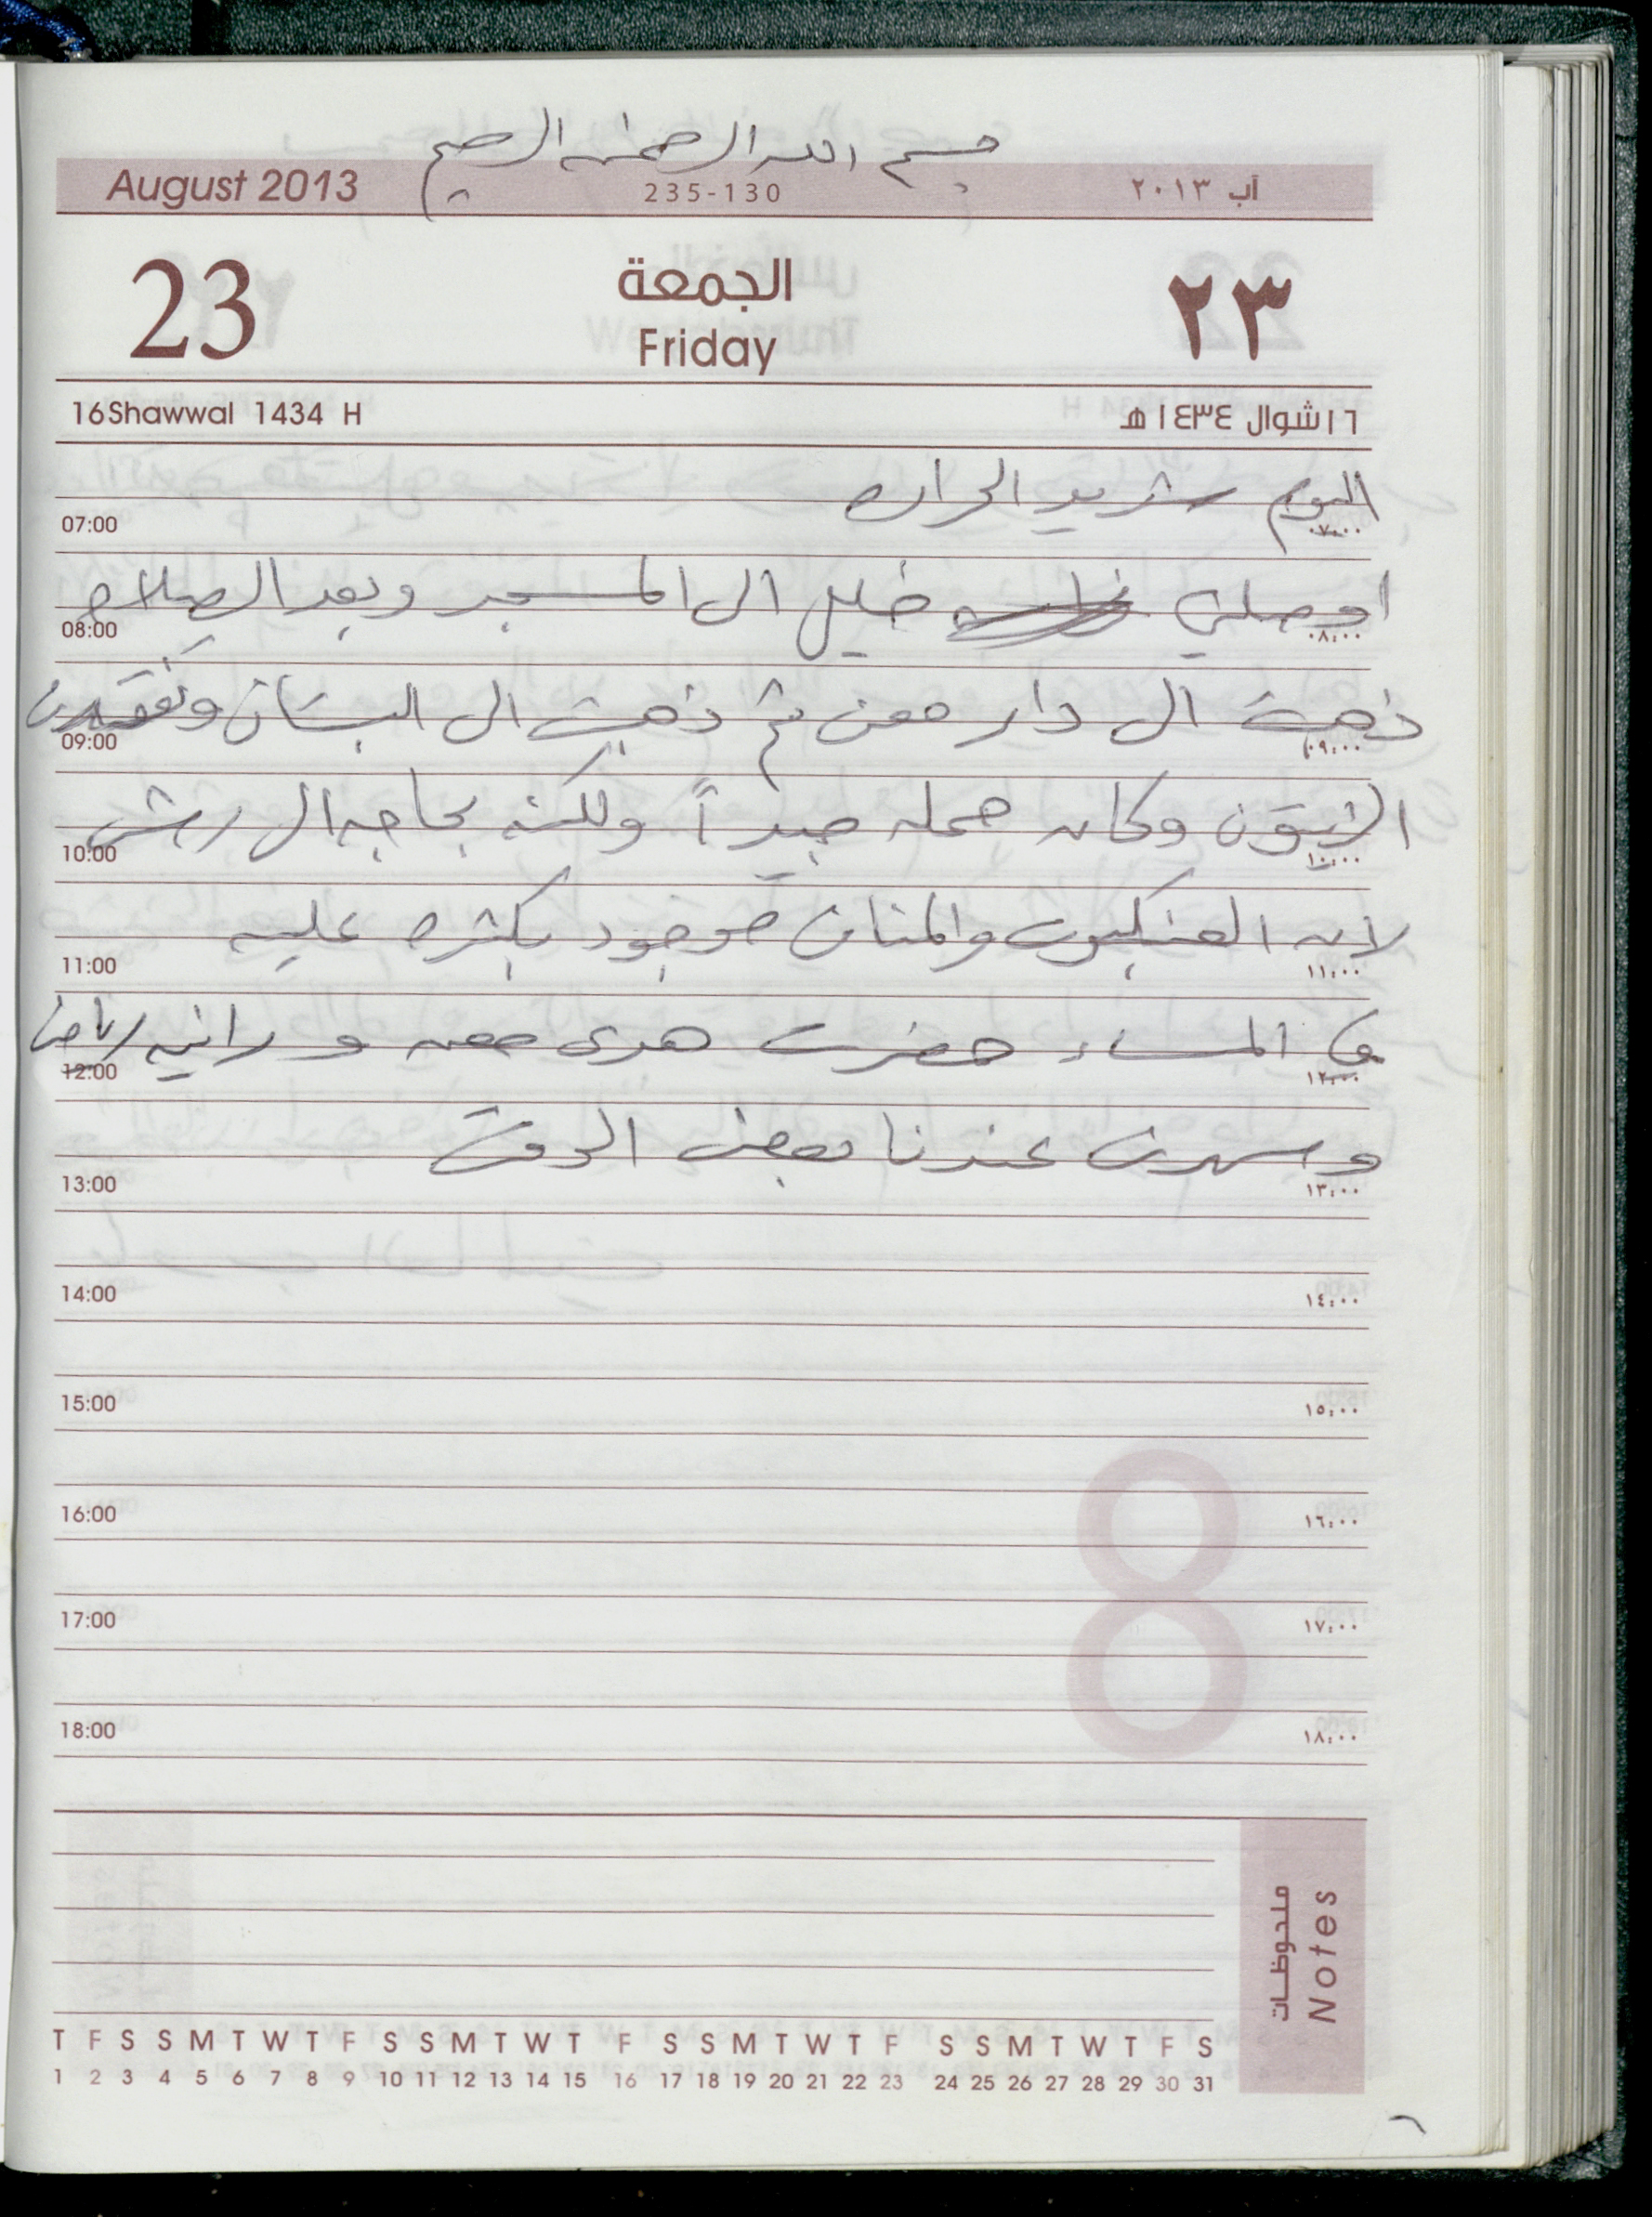 بسم الله الرحمن الرحيم
August 2013 235-130 آب ٢٠١٣
23 الجمعة ٢٣
Friday
16Shawwal 1434 H ١٦شوال ١٤٣٤ هـ
اليوم شديد الحراره
07:00 ٠٧:٠٠
اوصلني خليل الى المسجد وبعد الصلاه
08:00 ٠٨:٠٠
ذهبت الى دار معن ثم ذهبت الى البستان وتفقدت
09:00 ٠٩:٠٠
الزيتون وكان حمله جيداً ولكنه بحاجه الى رش
10:00 ١٠:٠٠
لان العنكبوت والمنان موجود بكثره عليه
11:00 ١١:٠٠
في المساء حضرت هدى معن و رانيه رياض
12:00 ١٢:٠٠
وسهرت عندنا بعض الوقت
13:00 ١٣:٠٠
14:00 ١٤:٠٠
15:00 ١٥:٠٠
16:00 ١٦:٠٠
17:00 ١٧:٠٠
18:00 ١٨:٠٠
8
ملحوظات
Notes
T F S S M T W T F S S M T W T F S S M T W T F S S M T W T F S
1 2 3 4 5 6 7 8 9 10 11 12 13 14 15 16 17 18 19 20 21 22 23 24 25 26 27 28 29 30 31